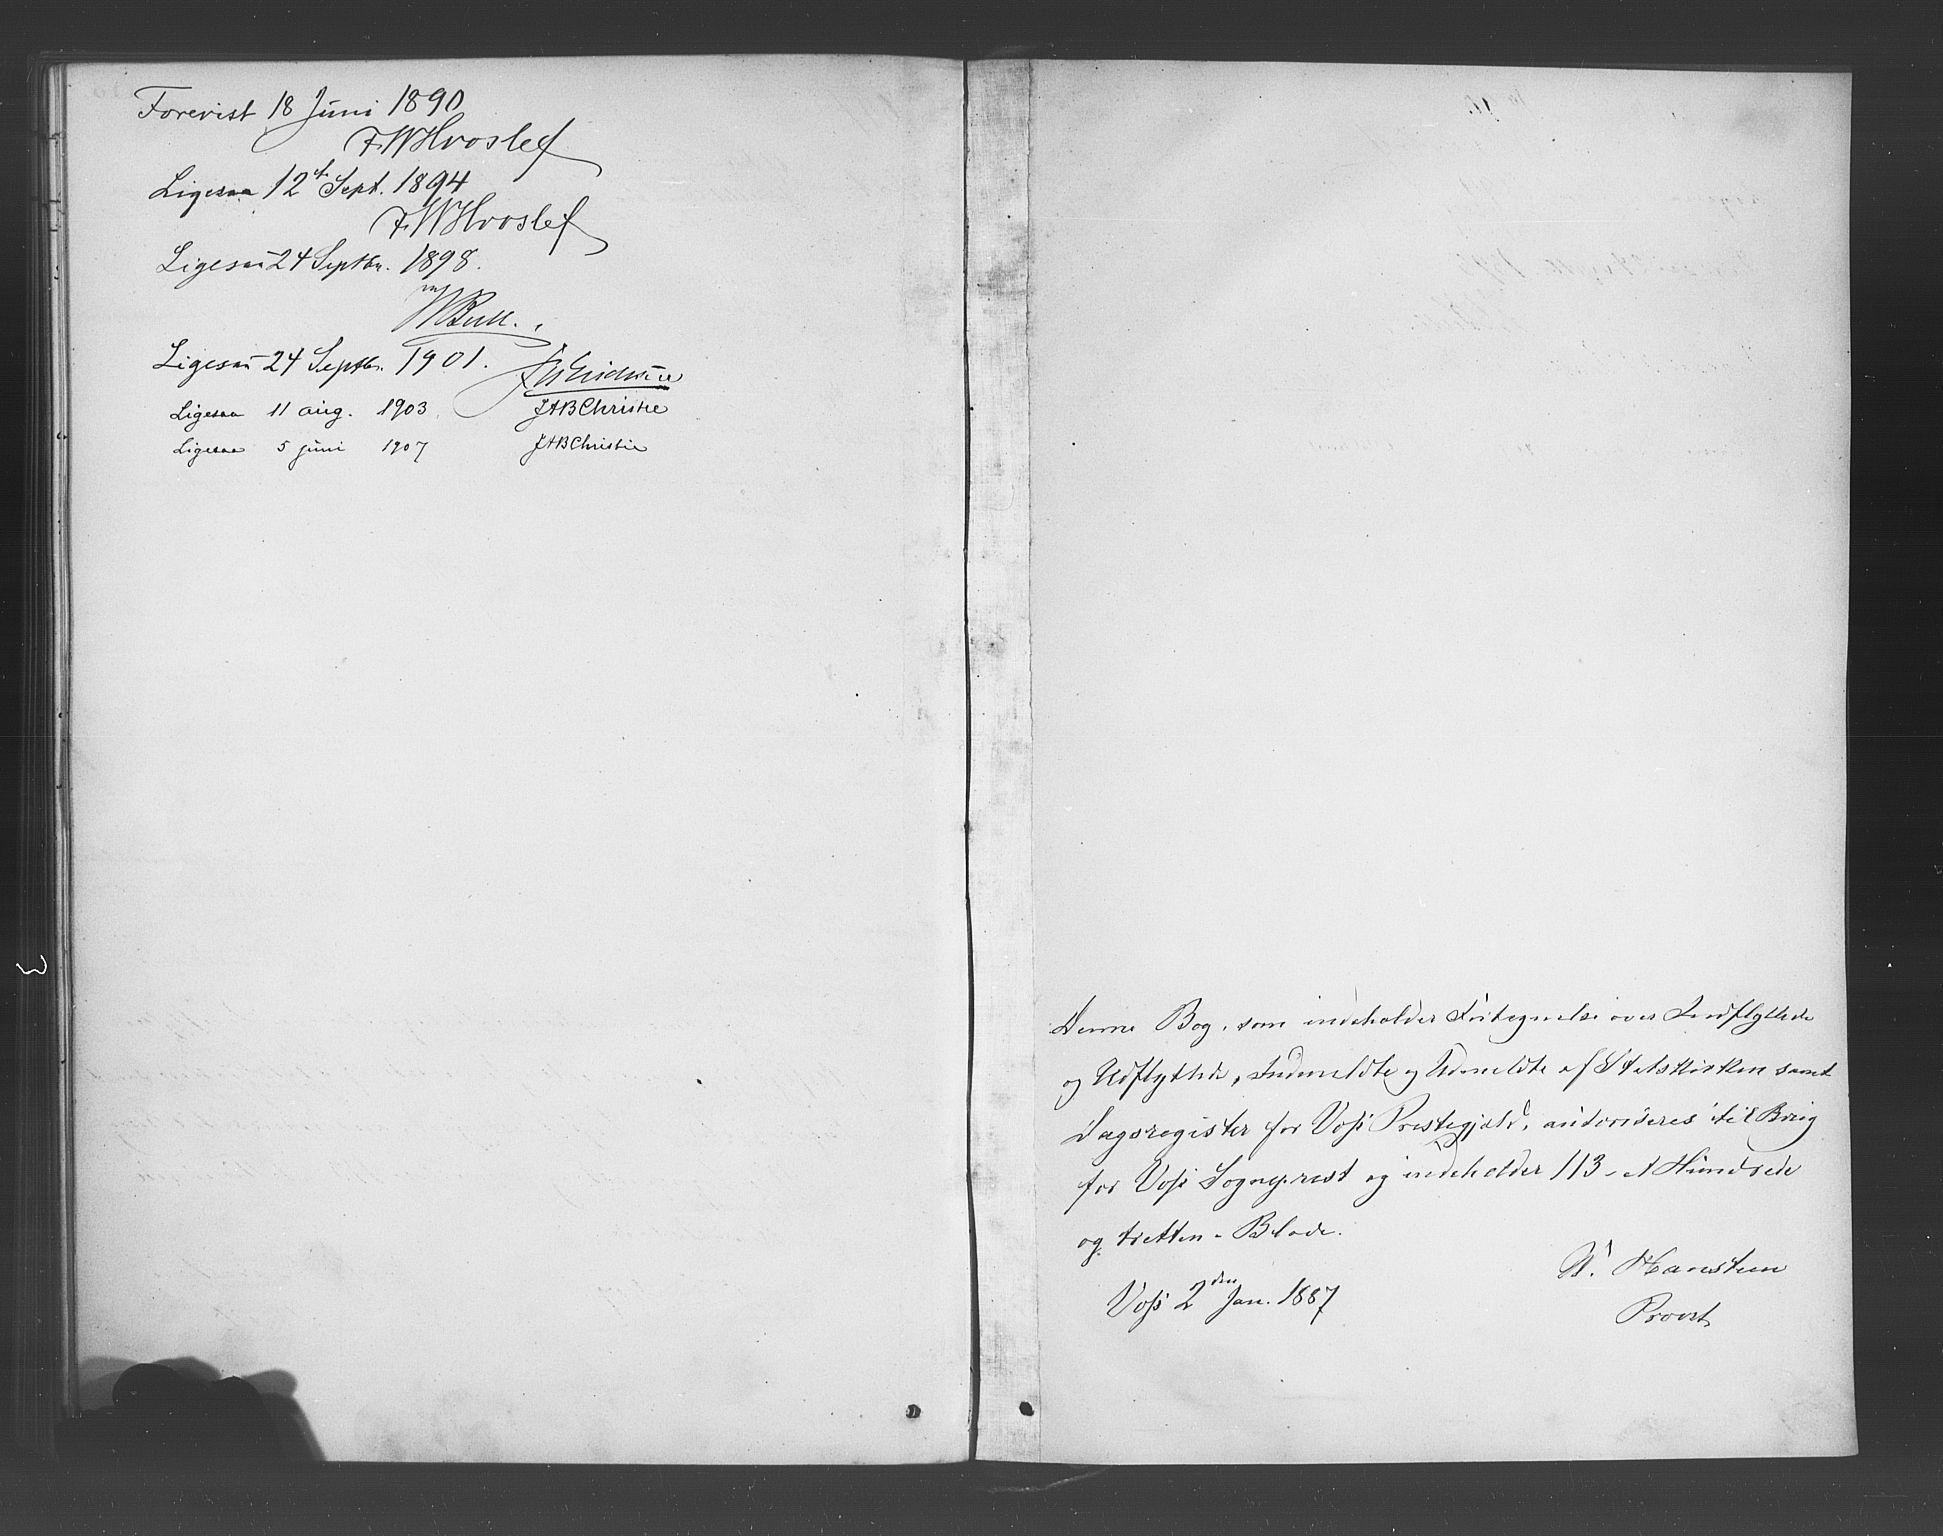 Forevist 18 Juni 1890
F. W. Hvoslef
Ligesaa 12t Sept. 1894
F. W. Hvoslef
Ligesaa 24 Septbr. 1898.
W Bull.
Ligesaa 24 Septbr. 1901.
Ligesaa 11 aug. 1903. JAB Christie
Ligesaa 5 juni 1907 JAB Christie
Denne Bog, som indeholder Fortegnelse over Indflyttede
og Udflyttede, Indmeldte og Udmeldte af Statskirken samt
Dagsregister for Voss Prestegjæld, autoriseres til Brug
for Voss Sogneprest og indeholder 113 - et Hundrede
og tretten - Blade.
Voss 2den Jan. 1887
Hansteen
Provst